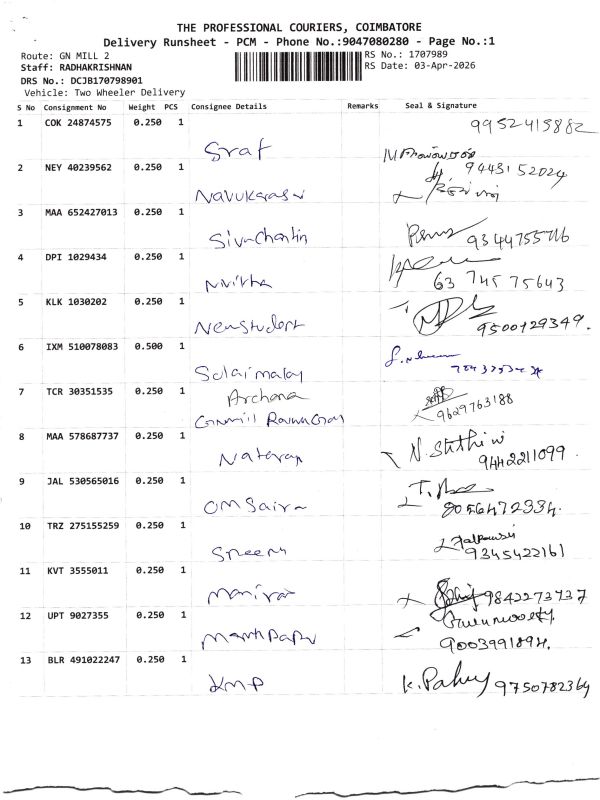 THE PROFESSIONAL COURIERS, COIMBATORE
Delivery Runsheet - PCM - Phone No.:9047080280 - Page No.:1
Route: GN MILL 2
RS No.: 1707989
Staff: RADHAKRISHNAN
RS Date: 03-Apr-2026
DRS No.: DCJB170798901
Vehicle: Two Wheeler Delivery
S No Consignment No Weight PCS Consignee Details Remarks Seal & Signature
1 COK 24874575 0.250 1
9952415882
Sraf
2 NEY 40239562 0.250 1
9443152024
Navukarasu
3 MAA 652427013 0.250 1
Sivachantin
4 DPI 1029434 0.250 1
63 745 75643
Nivitha
5 KLK 1030202 0.250 1
Newstudent 9500129349.
6 IXM 510078083 0.500 1
Solaimalay
7 TCR 30351535 0.250 1
Archana
9629763188
8 MAA 578687737 0.250 1
N. Sakthi
Natarap 9442211099
9 JAL 530565016 0.250 1
Omsaira 8056472334.
10 TRZ 275155259 0.250 1
Sreeen 9345422161
11 KVT 3555011 0.250 1
Manivar 9842273737
12 UPT 9027355 0.250 1
9003991894.
13 BLR 491022247 0.250 1
KMP K. Pahuy 9750782364